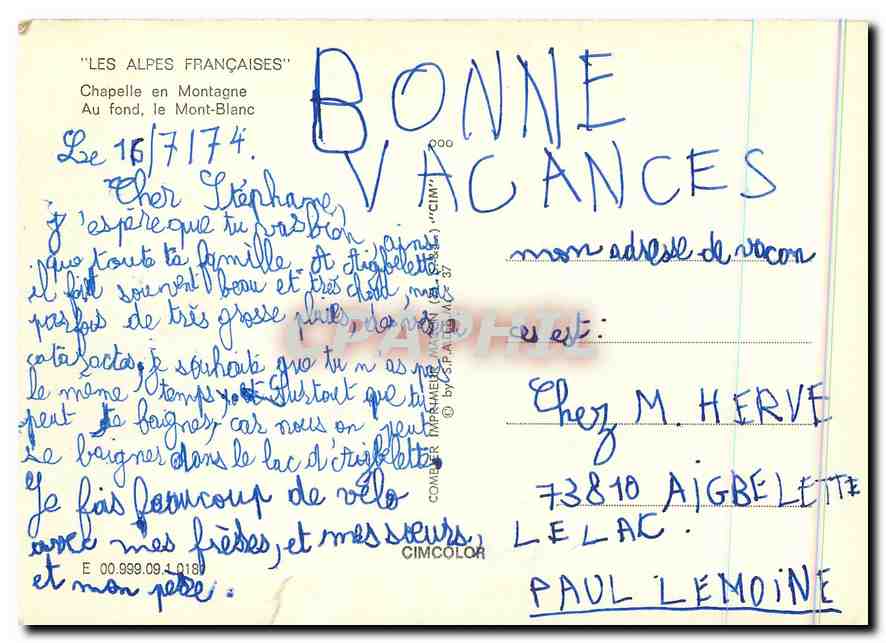 "LES ALPES FRANÇAISES"
Chapelle en Montagne
Au fond, le Mont-Blanc
Le 16/7/74.
Cher Stéphane,
j'espère que tu vas bien, ainsi
que toute ta famille. A Aigbelette
il fait souvent beau et très chaud, mais
parfois de très grosse pluies, des vraie
cataractes, je souhaite que tu n as pas
le même temps, et surtout que tu
peut te baigner, car nous on peut
se baigner dans le lac d'Aigbelette.
Je fais beaucoup de vélo
avec mes frères, et mes sœurs,
et mon père.
E 00.999.09.1.0189
BONNE
VACANCES
mon adresse de vacan
ces est :
Chez M. HERVE
73810 AIGBELETTE
LE LAC.
PAUL LEMOINE
COMBIER IMPRIMEUR MACON "CIM"
© by S.P.A.D.E.M. 37
CIMCOLOR
CPAPHIL